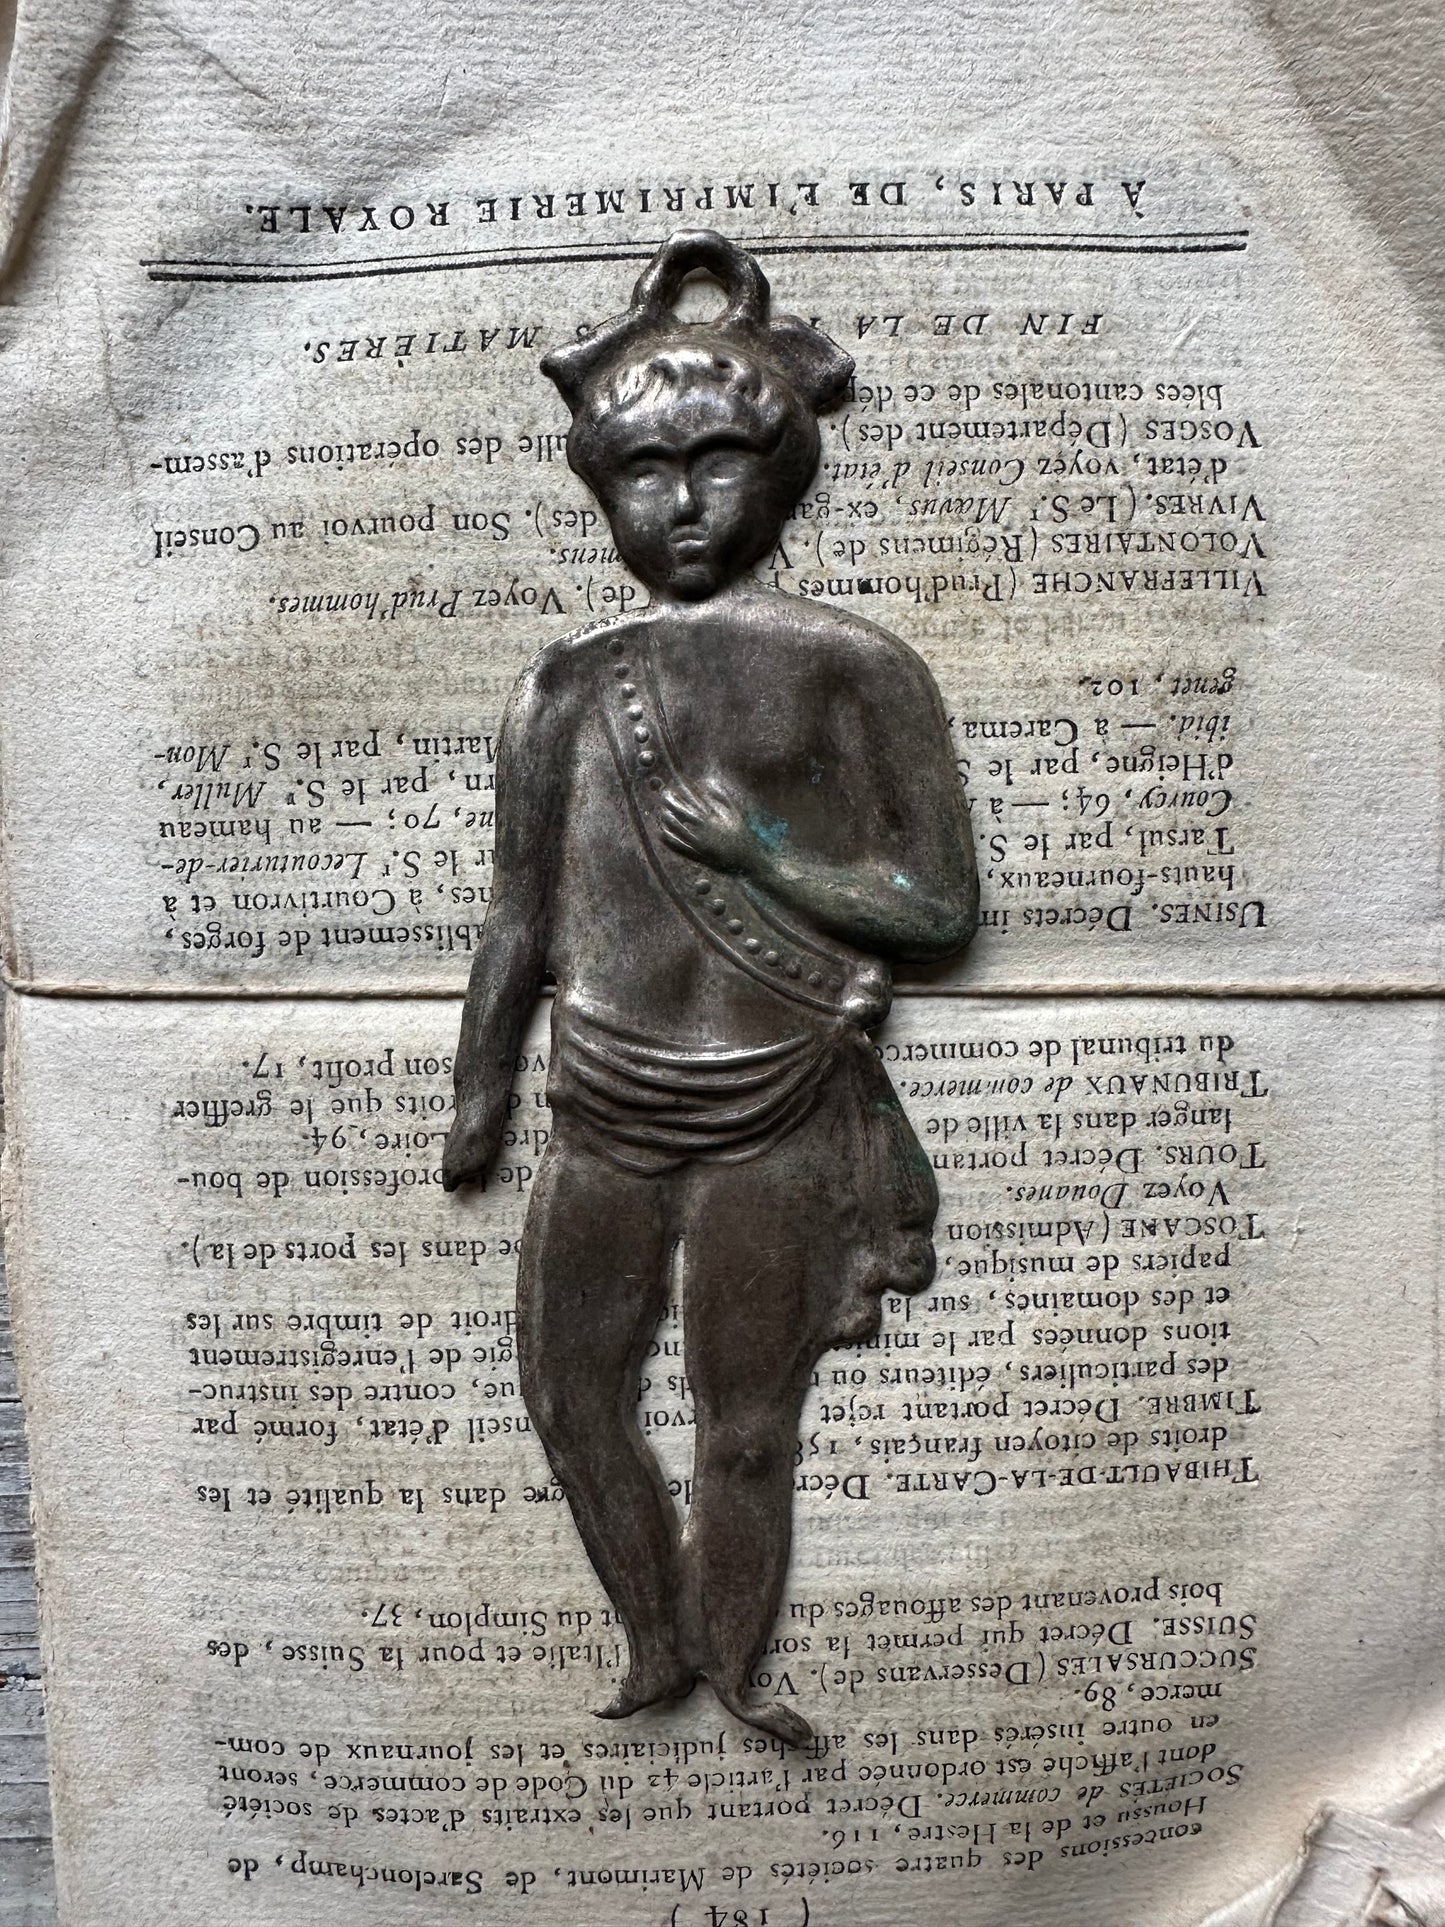 ( 184 )
concessions des quatre sociétés de Marimont, de Sarclonchamp, de
Houssu et de la Hestre, 116.
SOCIÉTÉS de commerce. Décret portant que les extraits d'actes de société
dont l'affiche est ordonnée par l'article 42 du Code de commerce, seront
en outre insérés dans les affiches judiciaires et les journaux de com-
merce, 89.
SUCCURSALES (Desservans de).
SUISSE. Décret qui permet la l'Italie et pour la Suisse, des
bois provenant des affouages du du Simplon, 37.
THIBAULT-DE-LA-CARTE. dans la qualité et les
droits de citoyen français,
TIMBRE. Décret portant rejet d'état, formé par
des particuliers, éditeurs ou contre des instruc-
tions données par le de l'enregistrement
et des domaines, sur la droit de timbre sur les
papiers de musique,
TOSCANE (Admission dans les ports de la).
Voyez Douanes.
TOURS. Décret de la profession de bou-
langer dans la ville de Loire, 94.
TRIBUNAUX de commerce. droits que le greffier
du tribunal de commerce son profit, 17.
USINES. Décrets de forges,
hauts-fourneaux, à Courtivron et à
Tarsul, par le S. le S.r Lecouturier-de-
Courcy, 64; — à 70; — au hameau
d'Heigne, par le par le S.r Muller,
ibid. — à Carema, Martin, par le S.r Mon-
genet, 102.
VILLEFRANCHE (Prud'hommes de). Voyez Prud'hommes.
VOLONTAIRES (Régimens de).
VIVRES. (Le S.r Mavus, des). Son pourvoi au Conseil
d'état, voyez Conseil d'état.
VOSGES (Département des). des opérations d'assem-
blées cantonales de ce
FIN DE LA MATIÈRES.
À PARIS, DE L'IMPRIMERIE ROYALE.